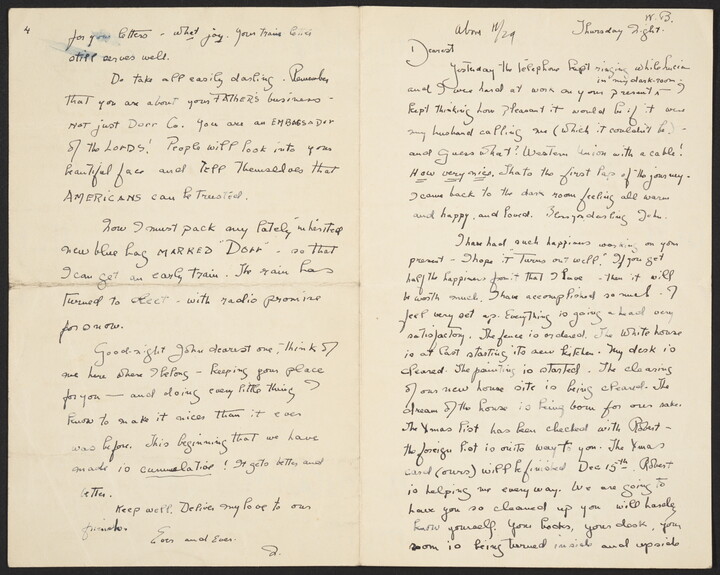 W.B.
About 11/29 Thursday Night.
Dearest
Yesterday the telephone kept ringing while Lucia
in my darkroom -
and I were hard at work on your present - I
kept thinking how pleasant it would be if it were
my husband calling me (which it couldn't be) -
and guess what! Western Union with a cable!
How very nice. Thats the first lap of the journey.
I came back to the dark room feeling all warm
and happy and loved. Bless you darling John.
I have had such happiness working on your
present - I hope it turns out well. If you get
half the happiness from it that I have - then it will
be worth much. I have accomplished so much - I
feel very set up. Everything is going ahead very
satisfactory. The fence is ordered. The White house
is at last starting its new kitchen. My desk is
cleared. The painting is started. The clearing
of our new house site is being cleared. The
dream of the house is being born for our sake.
The Xmas list has been checked with Robert -
the foreign list is on its way to you. The Xmas
card (ours) will be finished Dec 15th. Robert
is helping me every way. We are going to
have you so cleaned up you will hardly
know yourself. Your books, your desk, your
room is being turned inside and upside
4
for your letters - what joy. Your train
still serves well.
Do take all easily darling. Remember
that you are about your FATHER'S business -
NOT just DORR Co. You are an EMBASSADOR
of the LORDS! People will look into your
beautiful face and TELL Themselves that
AMERICANS can be Trusted.
Now I must pack my lately inherited
new blue bag MARKED "DORR" - so that
I can get an early train. The rain has
turned to sleet - with radio promise
for snow.
Good-night John dearest one, Think of
me here where I belong - keeping your place
for you - and doing every little thing I
know to make it nicer than it ever
was before. This beginning that we have
made is cumulative! It gets better and
better.
Keep well. Deliver my love to our
friends.
Ever and Ever.